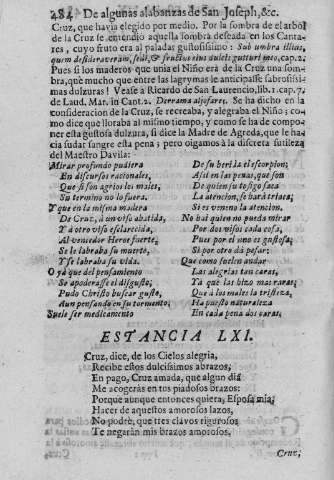 484 De algunas alabanzas de San Joseph, &c.
Cruz, que havia elegido por medio. Por la sombra de el arbol
de la Cruz se entendio aquella sombra deseada en los Canta-
res, cuyo fruto era al paladar gustosissimo: Sub umbra illius,
quem desideraveram, sedi, & fructus eius dulcis gutturi meo, cap. 2.
Pues si los maderos que unìa el Niño era de la Cruz una som-
bra, què mucho que entre las lagrymas le anticipasse sabrosissi-
mas dulzuras! Vease a Ricardo de San Laurencio, lib. 1. cap. 7.
de Laud. Mar. in Cant. 2. Derrama aljofares. Se ha dicho en la
consideracion de la Cruz, se recreaba, y alegraba el Niño; co-
mo dice que lloraba al mismo tiempo, y como se ha de compo-
ner esta gustosa dulzura, si dice la Madre de Agreda, que le ha-
cia sudar sangre esta pena; pero oigamos à la discreta sutileza
del Maestro Davila:
Mirar profundo pudiera
En discursos racionales,
Que si son agrios los males,
Su termino no lo fuera.
Y que en la misma madera
De Cruz, à un viso abatida,
Y à otro viso esclarecida,
Al vencedor Heroe fuerte,
Se le labraba su muerte,
Y se labraba su vida.
O ya que del pensamiento
Se apoderasse el disgusto,
Pudo Christo buscar gusto,
Aun pensando en su tormento;
Suele ser medicamento
De su herida el escorpion;
Asi en las penas, que son
De quien su tosigo saca
La atencion, se harà triaca,
Si es veneno la atencion.
No hai quien no pueda mirar
Por dos visos cada cosa,
Pues por el uno es gustosa;
Si por otro dà pesar;
Que como suelen andar
Las alegrias tan caras,
Ya que las hizo mas raras,
Que à los males la tristeza,
Ha puesto naturaleza
En cada pena dos caras.
ESTANCIA LXI.
Cruz, dice, de los Cielos alegria,
Recibe estos dulcissimos abrazos,
En pago, Cruz amada, que algun dia
Me acogeràs en tus piadosos brazos:
Porque aunque entonces quiera, Esposa mia,
Hacer de aquestos amorosos lazos,
No podrè, que tres clavos rigurosos
Te negaràn mis brazos amorosos.
Cruz,